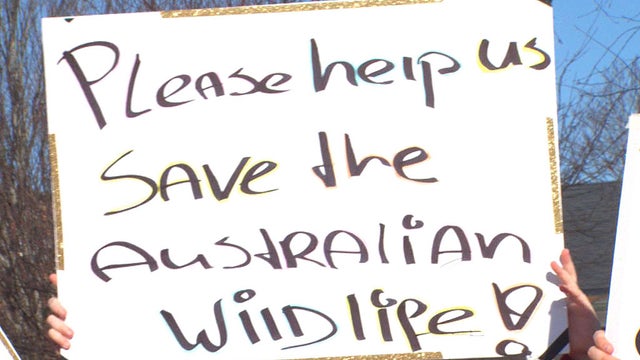 Please help us
Save the
Australian
Wildlife!